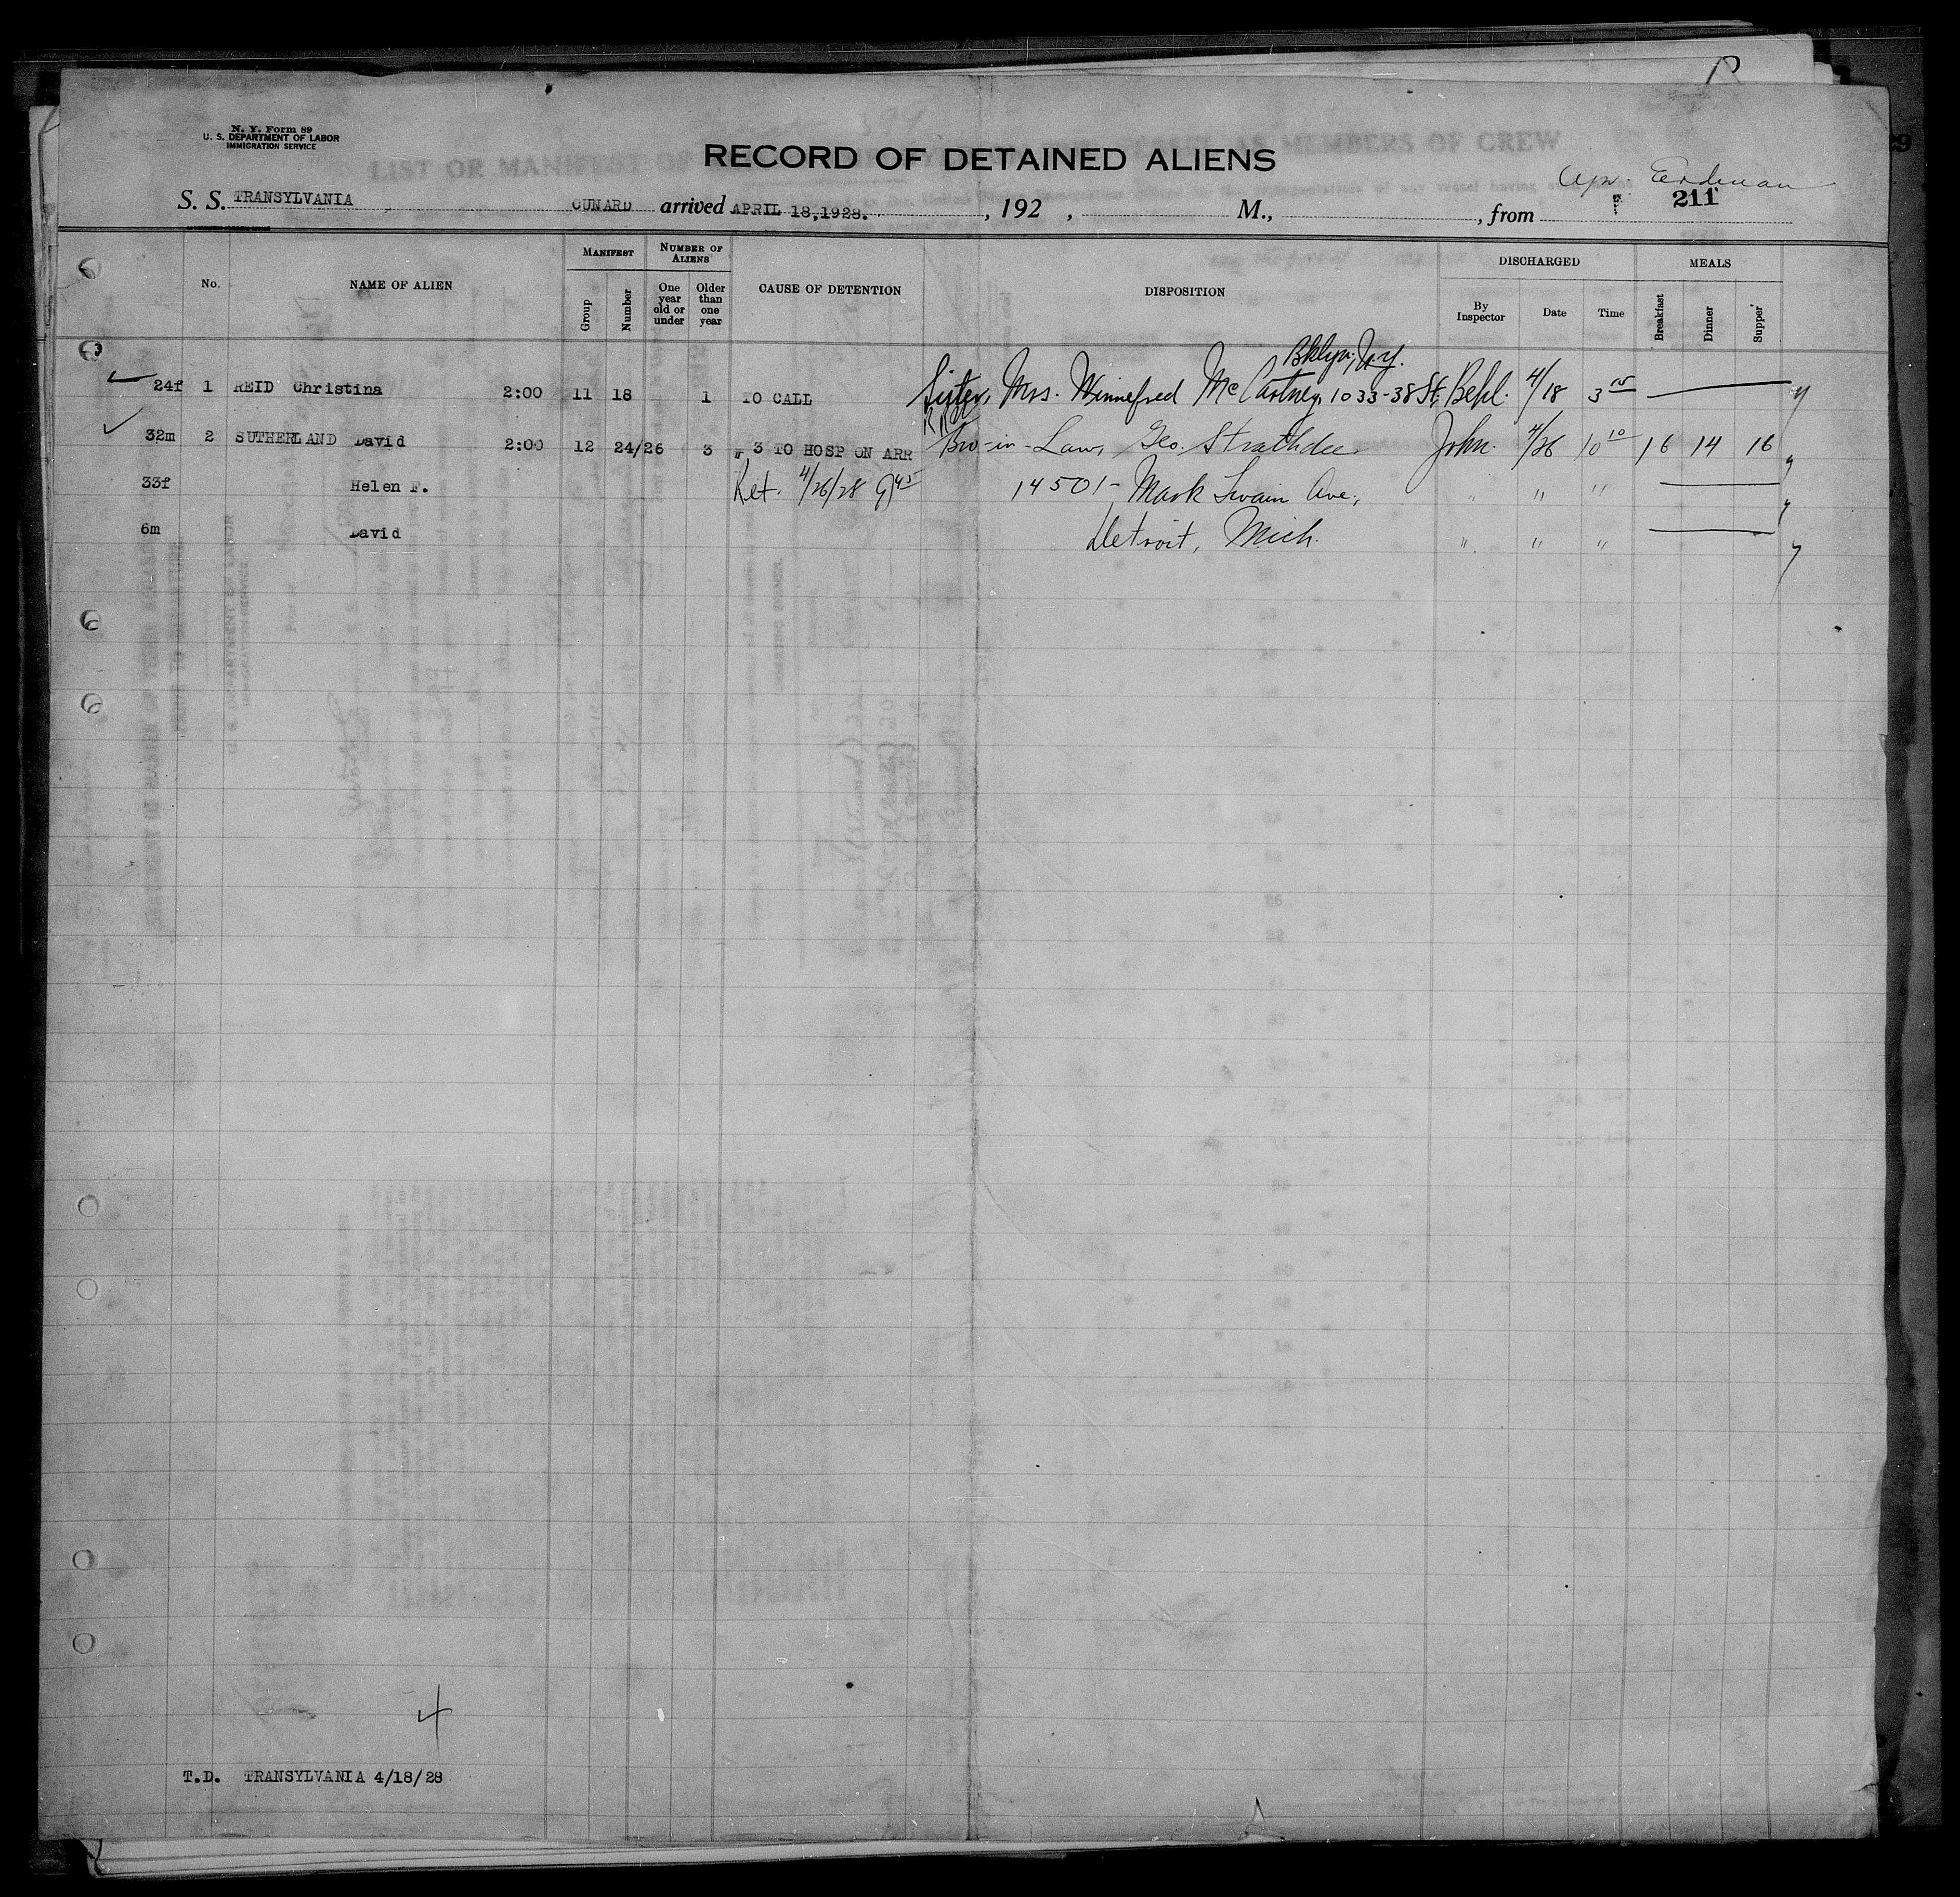 N. Y. Form 89
U. S. DEPARTMENT OF LABOR
IMMIGRATION SERVICE
RECORD OF DETAINED ALIENS
S. S. TRANSYLVANIA CUNARD arrived APRIL 18,1928. , 192 , M., , from 211
No. NAME OF ALIEN MANIFEST Group Number NUMBER OF ALIENS One year old or under Older than one year CAUSE OF DETENTION DISPOSITION DISCHARGED By Inspector Date Time MEALS Breakfast Dinner Supper
Bklyn, N.Y.
24f 1 REID Christina 2:00 11 18 1 TO CALL Sister, Mrs. Winnefred McCartney, 1033-38 St, Behl. 4/18 3 15
32m 2 SUTHERLAND David 2:00 12 24/26 3 # 3 TO HOSP ON ARR Bro-in-Law, Geo. Strathdee John. 4/26 10 10 16 14 16
33f Helen F. Ret. 4/26/28 9 45 14501- Mark Twain Ave, " " "
6m David Detroit, Mich. " " "
4
T.D. TRANSYLVANIA 4/18/28